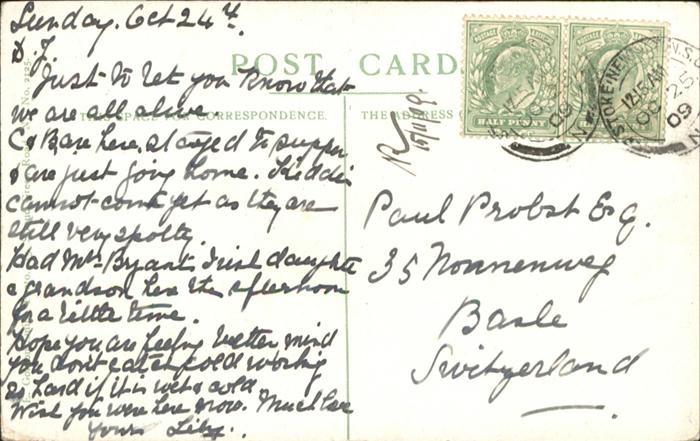 Sunday. Oct 24th.
D. J.
Just to let you know that
we are all alive.
C & B are here, stayed to supper
& are just going home. Kiddies
cannot come yet as they are
still very spotty.
Had Mrs Bryant's daughter
& grandson here this afternoon
for a little time.
Hope you are feeling better mind
you don't catch cold working
so hard if it is wet & cold
Wish you were here now. Much love
Yours Lily.
POST CARD
THIS SPACE FOR CORRESPONDENCE.
THE ADDRESS
POSTAGE
HALF PENNY
POSTAGE
HALF PENNY
STOKE NEWINGTON
12.15 AM
OC 25
09
N
Paul Probst Esq.
35 Nonnenweg
Basle
Switzerland